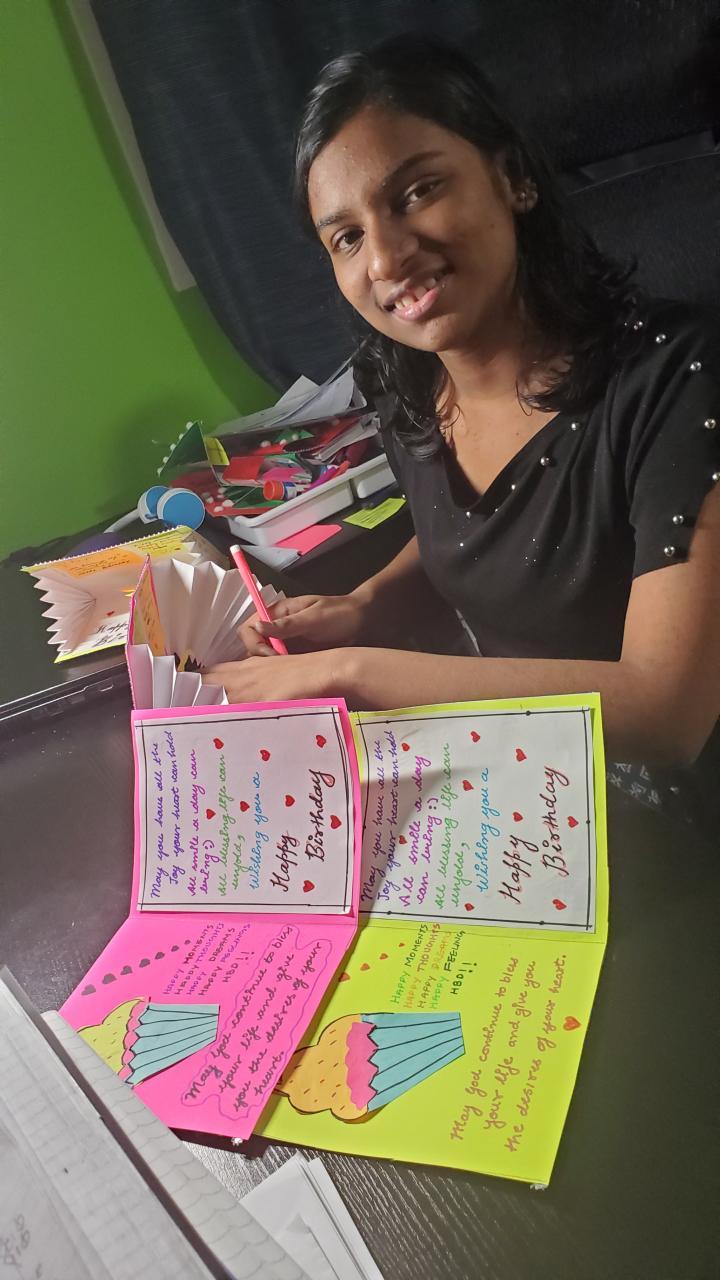 May you have all the
Joy your heart can hold
All smile a day can
bring :)
All blessing life can
unfold,
Wishing you a
Happy
Birthday
HAPPY MOMENTS
HAPPY THOUGHTS
HAPPY DREAMS
HAPPY FEELINGS
HBD!!
May god continue to bless
your life and give
you the desires of your
heart.
May you have all the
Joy your heart can hold
All smile a day
can bring :)
All blessing life can
unfold,
Wishing you a
Happy
Birthday
HAPPY MOMENTS
HAPPY THOUGHTS
HAPPY DREAMS
HAPPY FEELING
HBD!!
May god continue to bless
your life and give you
the desires of your heart.
Happy